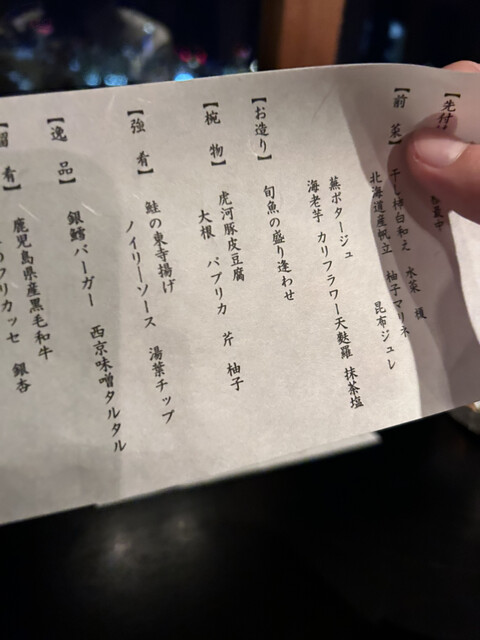 【先付
最中
【前菜】
干し柿白和え 水菜
北海道産帆立 柚子マリネ 昆布ジュレ
蕪ポタージュ
海老芋 カリフラワー天麩羅 抹茶塩
【お造り】
旬魚の盛り逢わせ
【椀物】
虎河豚皮豆腐
大根 パプリカ 芹 柚子
【強肴】
鮭の東寺揚げ
ノイリーソース 湯葉チップ
【逸品】
銀鱈バーガー 西京味噌タルタル
肴】
鹿児島県産黒毛和牛
フリカッセ 銀杏